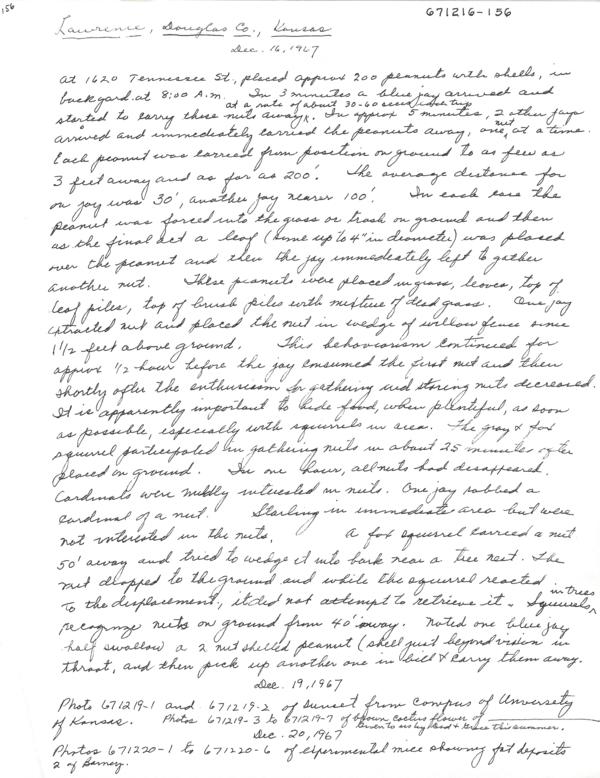 156
671216-156
Lawrence, Douglas Co., Kansas
Dec. 16, 1967
At 1620 Tennessee St., placed approx 200 peanuts with shells, in
backyard at 8:00 A.M. In 3 minutes a blue jay arrived and
started to carry these nuts away at a rate of about 30-60 seconds each trip. In approx 5 minutes, 2 other jays
arrived and immediately carried the peanuts away, one nut at a time.
Each peanut was carried from position on ground to as few as
3 feet away and as far as 200'. The average distance for
on jay was 30', another jay nearer 100'. In each case the
peanut was forced into the grass or trash on ground and then
as the final act a leaf (some up to 4" in diameter) was placed
over the peanut and then the jay immediately left to gather
another nut. These peanuts were placed in grass, leaves, top of
leaf piles, top of brush piles with mixture of dead grass. One jay
extracted nut and placed the nut in wedge of willow fence
1 1/2 feet above ground. This behaviorism continued for
approx 1/2 hour before the jay consumed the first nut and then
shortly after the enthusiasm for gathering and storing nuts decreased.
It is apparently important to hide food, when plentiful, as soon
as possible, especially with squirrels in area. The gray & fox
squirrel participated in gathering nuts in about 25 minutes after
placed on ground. In one hour, all nuts had desappeared.
Cardinals were mildly interested in nuts. One jay robbed a
cardinal of a nut. Starling in immediate area but were
not interested in the nuts. A fox squirrel carried a nut
50' away and tried to wedge it into bark near a tree nest. The
nut dropped to the ground and while the squirrel reacted
to the displacement, it did not attempt to retrieve it. Squirrels in trees
recognize nuts on ground from 40' away. Noted one blue jay
half swallow a 2 nut shelled peanut (shell just beyond vision in
throat, and then pick up another one in bill & carry them away.
Dec. 19, 1967
Photo 671219-1 and 671219-2 of sunset from campus of University
of Kansas. Photos 671219-3 to 671219-7 of brown cactus flower of
Given to us by & Grace this summer.
Dec. 20, 1967
Photos 671220-1 to 671220-6 of experimental mice showing fat deposits
2 of Barney.